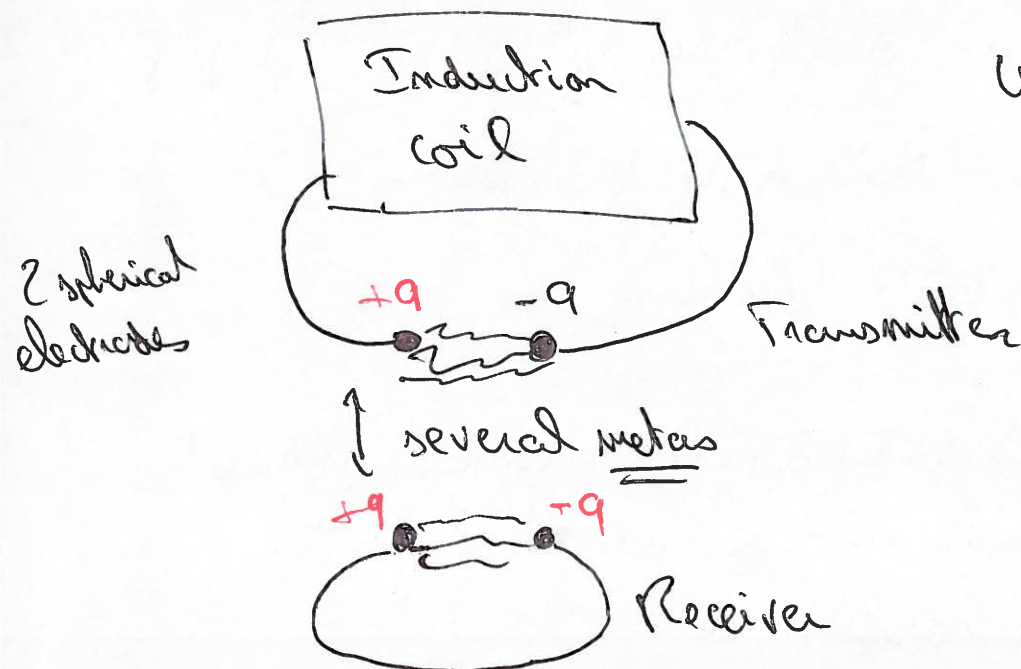 Induction
coil
2 spherical
electrodes
+q
-q
Transmitter
↕ several meters
+q
-q
Receiver